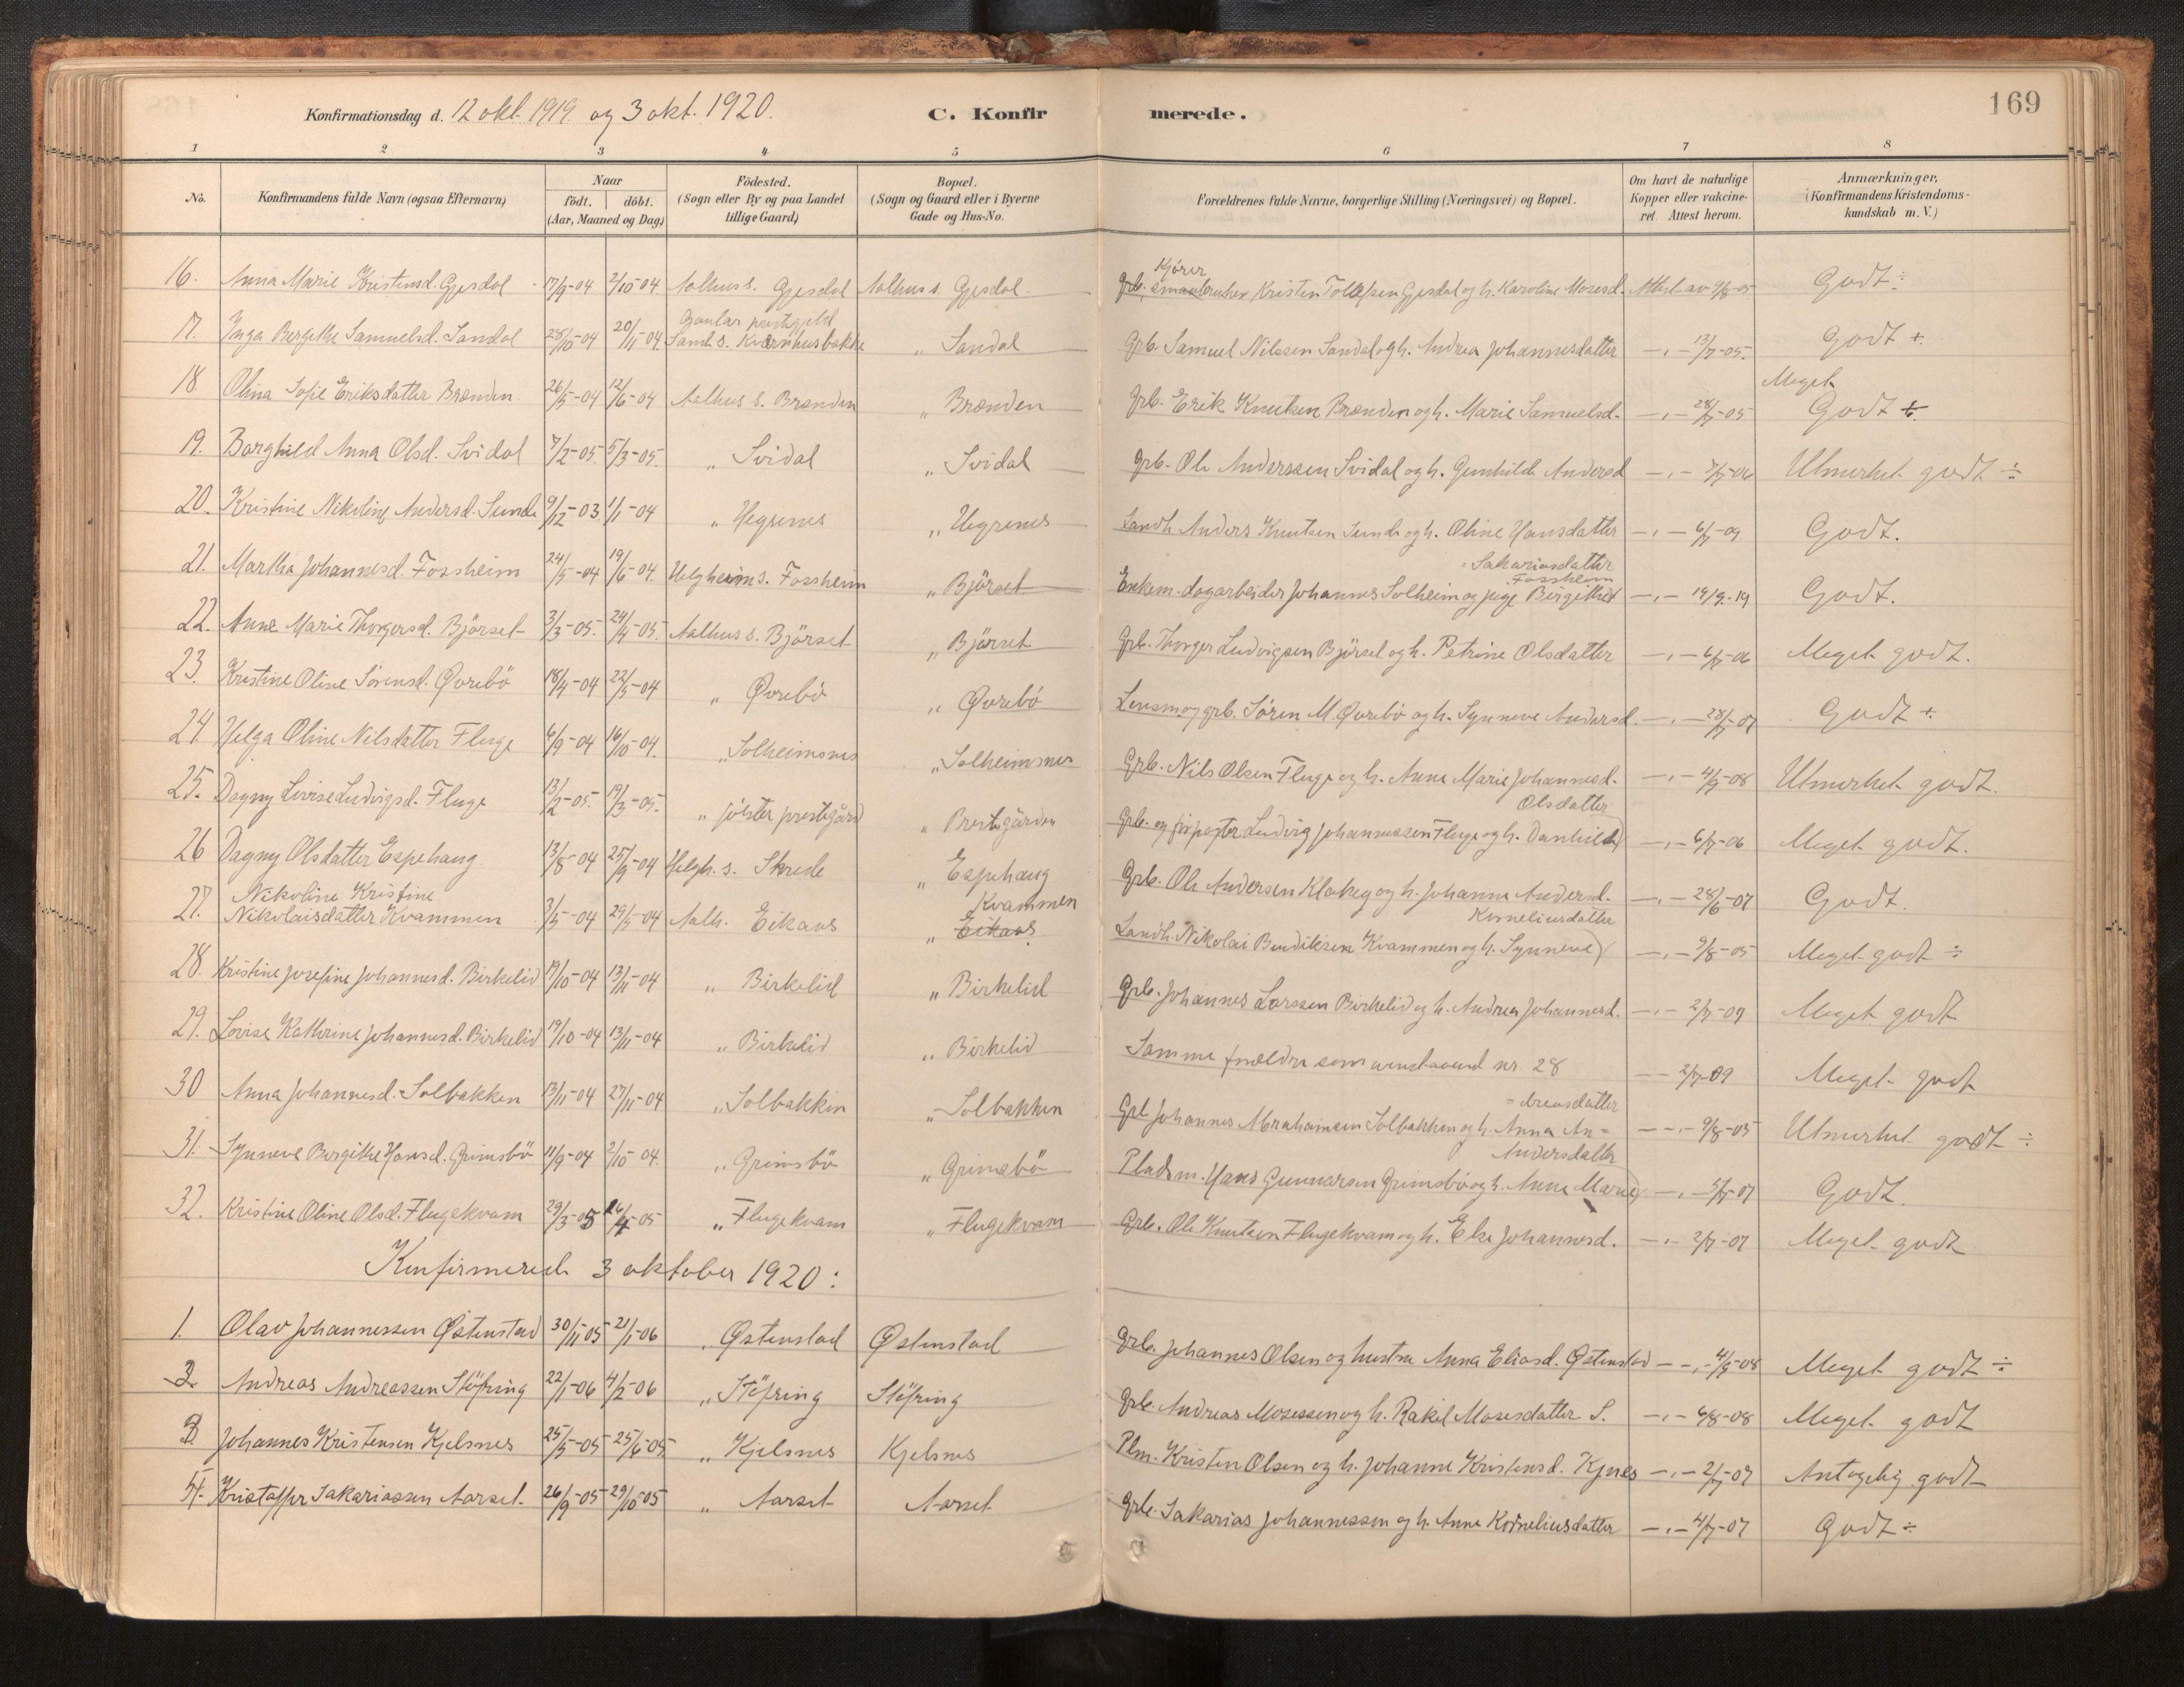 Konfirmationsdag d. 12 okt. 1919 og 3 okt. 1920. C. Konfir merede. 169
1 2 3 4 5 6 7 8
No. Konfirmandens fulde Navn (ogsaa Efternavn) Naar födt. döbt. (Aar, Maaned og Dag) Födested. (Sogn eller By og paa Landet tillige Gaard) Bopæl. (Sogn og Gaard eller i Byerne Gade og Hus-No. Forældrenes fulde Navne, borgerlige Stilling (Næringsvei) og Bopæl. Om havt de naturlige Kopper eller vakcineret Attest herom. Anmærkninger, (Konfirmandens Kristendomskundskab m. V.)
Kjörer
16. Anna Marie Kristensd. Gjesdal 17/9-04 2/10-04. Aalhus s. Gjesdal Aalhus s. Gjesdal Grb. smaabruker Kristen Tollefsen Gjesdal og h. Karoline Mosesd. Attest av 9/8-05 Godt ÷
Gaular prestegjeld
17. Inga Bergithe Samuelsd. Sandal 28/10-04 20/11-04. Sands. Kvernhusbakke „ Sandal Grb. Samuel Nilssen Sandal og h. Andrea Johannesdatter —„— 13/7-05. Godt +.
Meget
18 Olina Sofie Eriksdatter Brænden 26/5-04 12/6-04 Aalhus s. Brænden „ Brænden Grb. Erik Knutsen Brænden og h. Marie Samuelsd. —„— 28/7-05 Godt +
19. Borghild Anna Olsd. Svidal 7/2-05. 5/3-05. „ Svidal „ Svidal Grb. Ole Anderssen Svidal og h. Gunhilde Andersd —„— 7/7-06 Utmerket godt ÷
20. Kristine Nikoline Andersd. Sunde 9/12-03 1/1-04 „ Hegrenes „ Hegrenes Landh. Anders Knutsen Sunde og h. Oline Hansdatter —„— 6/7-09 Godt.
= Sakariasdatter
Fossheim
21. Martha Johannesd. Fossheim 24/5-04 19/6-04. Helgheim s. Fossheim „ Bjørset Enkem. dagarbeider Johannes Solheim og pige Bergithe —„— 19/9-19 Godt.
22. Anne Marie Thorgersd. Björset 3/3-05. 24/4-05. Aalhus s. Björset „ Björset Grb. Thorger Ludvigsen Björset og h. Petrine Olsdatter —„— 6/7-06 Meget godt.
23. Kristine Oline Sörensd. Øvrebö 18/4-04 22/5-04 „ Øvrebö „ Øvrebö Lensm. og grb. Sören M. Øvrebö og h. Synneve Andersd —„— 28/7-07 Godt +
24. Helga Oline Nilsdatter Fluge 6/9-04 16/10-04. „ Solheimsnes „ Solheimsnes Grb. Nils Olsen Fluge og h. Anne Marie Johannesd. —„— 4/9-08 Utmerket godt.
Olsdatter
25. Dagny Lovise Ludvigsd. Fluge 13/2-05. 19/3-05. „ Jölster prestegård „ Prestegården Grb. og forpagter Ludvig Johannessen Fluge og h. Danhild —„— 6/7-06 Meget godt.
26 Dagny Olsdatter Espehaug 13/8-04 25/9-04 Helgh. s. Skrede „ Espehaug Grb. Ole Andersen Klakeg og h. Johanne Andersd. —„— 28/6-07 Godt.
Nikoline Kristine Kvammen Korneliusdatter
27. Nikolaisdatter Kvammen 3/5-04 29/5-04 Aalh. Eikaas „ Eikaas Landh. Nikolai Bendiksen Kvammen og h. Synneve —„— 9/8-05 Meget godt ÷
28. Kristine Josefine Johannesd. Birkelid 19/10-04 13/11-04 „ Birkelid „ Birkelid Grb. Johannes Larssen Birkelid og h. Andrea Johannesd. —„— 2/7-09 Meget godt
29. Lovise Kathrine Johannesd. Birkelid 19/10-04 13/11-04 „ Birkelid „ Birkelid Samme forældre som ovenstaaende nr. 28 — — 2/7-09 Meget godt
= dreasdatter
30 Anna Johannesd. Solbakken 13/11-04 27/11-04 „ Solbakken „ Solbakken Grb. Johannes Abrahamsen Solbakken og h. Anna An= —„— 9/8-05 Utmerket godt ÷
Andersdatter
31. Synneve Bergithe Hansd. Grimsbö 11/9-04 2/10-04. „ Grimsbö „ Grimsbö Pladsm. Hans Gunnarsen Grimsbö og h. Anne Marie —„— 5/7-07 Godt.
32. Kristine Oline Olsd. Flugekvam 29/3-05 26/4-05 „ Flugekvam „ Flugekvam Grb. Ole Knutsen Flugekvam og h. Else Johannesd. —„— 2/7-07 Meget godt
Konfirmerede 3 oktober 1920:
1. Olav Johannessen Østenstad 30/11-05 21/1-06 „ Østenstad Østenstad Grb. Johannes Olsen og hustru Anna Eliasd. Østenstad —„— 4/9-08 Meget godt ÷
2. Andreas Andreassen Stöfring 22/1-06 4/2-06 „ Stöfring Stöfring Grb. Andreas Mosessen og h. Rakel Mosesdatter S. —„— 6/8-08 Meget godt
3. Johannes Kristensen Kjelsnes 25/5-05 25/6-05 „ Kjelsnes Kjelsnes Plm. Kristen Olsen og h. Johanne Kristensd. Kjnes —„— 2/7-07 Antagelig godt
4. Kristoffer Sakariassen Aarset 26/9-05 29/10-05 „ Aarset Aarset Grb. Sakarias Johannessen og h. Anne Korneliusdatter —„— 4/7-07 Godt ÷